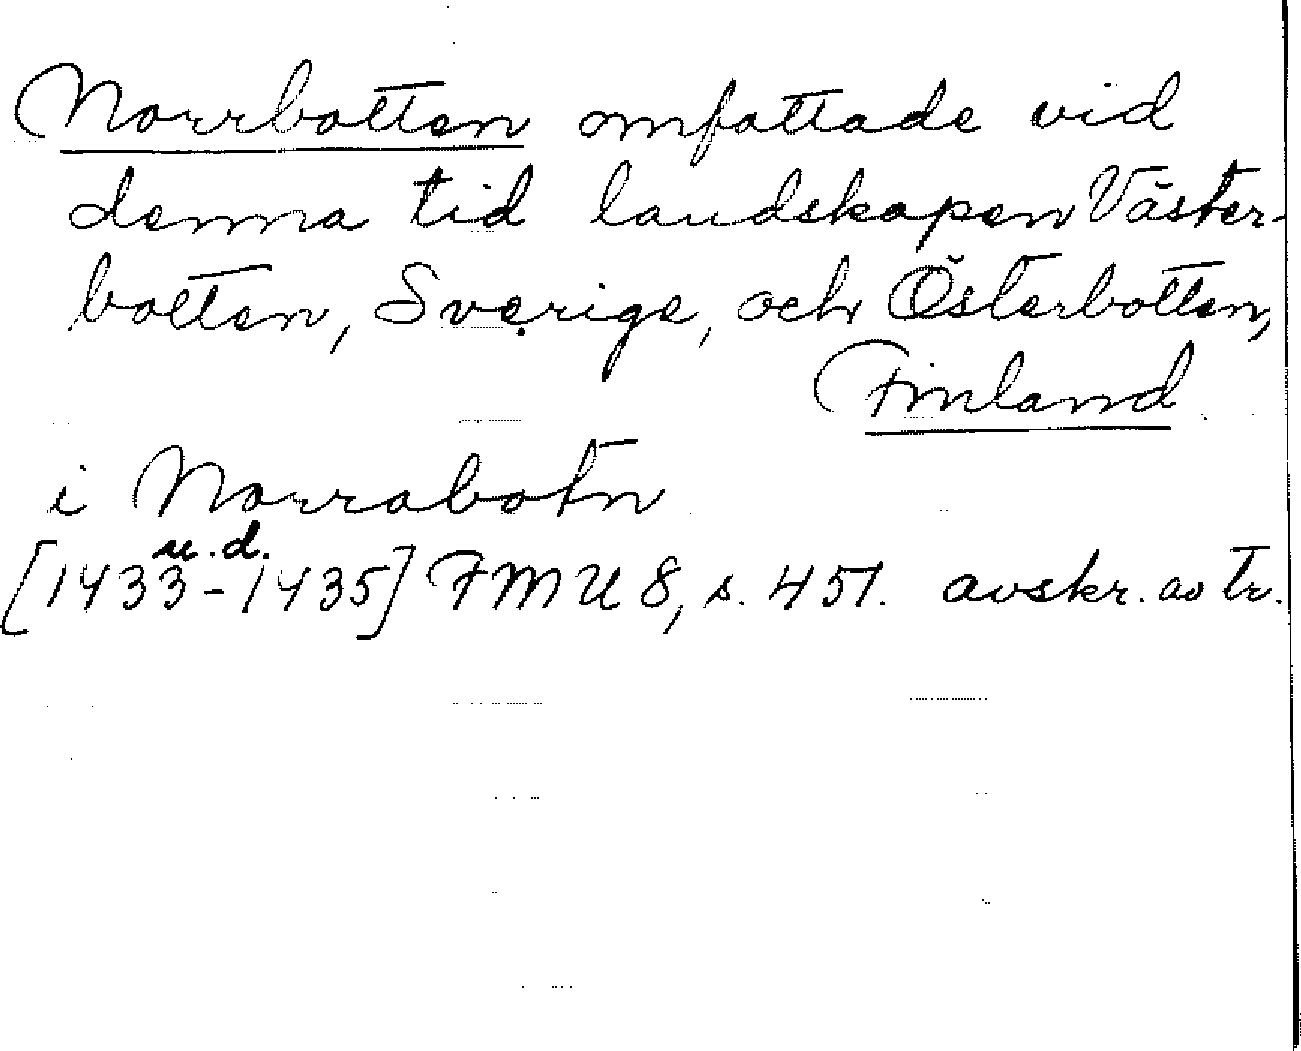 Norrbotten omfattade vid
denna tid landskapen Väster-
botten, Sverige, och Österbotten,
Finland
i Norrabotn
u.d.
[1433-1435] FMU 8, s. 451. avskr. av tr.